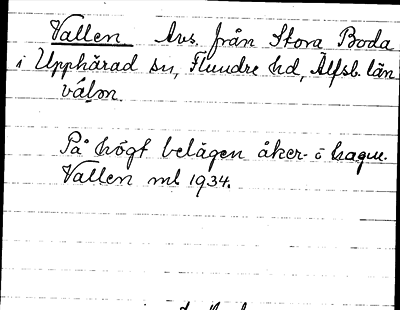 Vallen Avs. från Stora Boda
i Upphärad sn, Flundre hd, Älfsb. län
vál̥on.
På högt belägen åker- o hagm.
Vallen ml 1934.